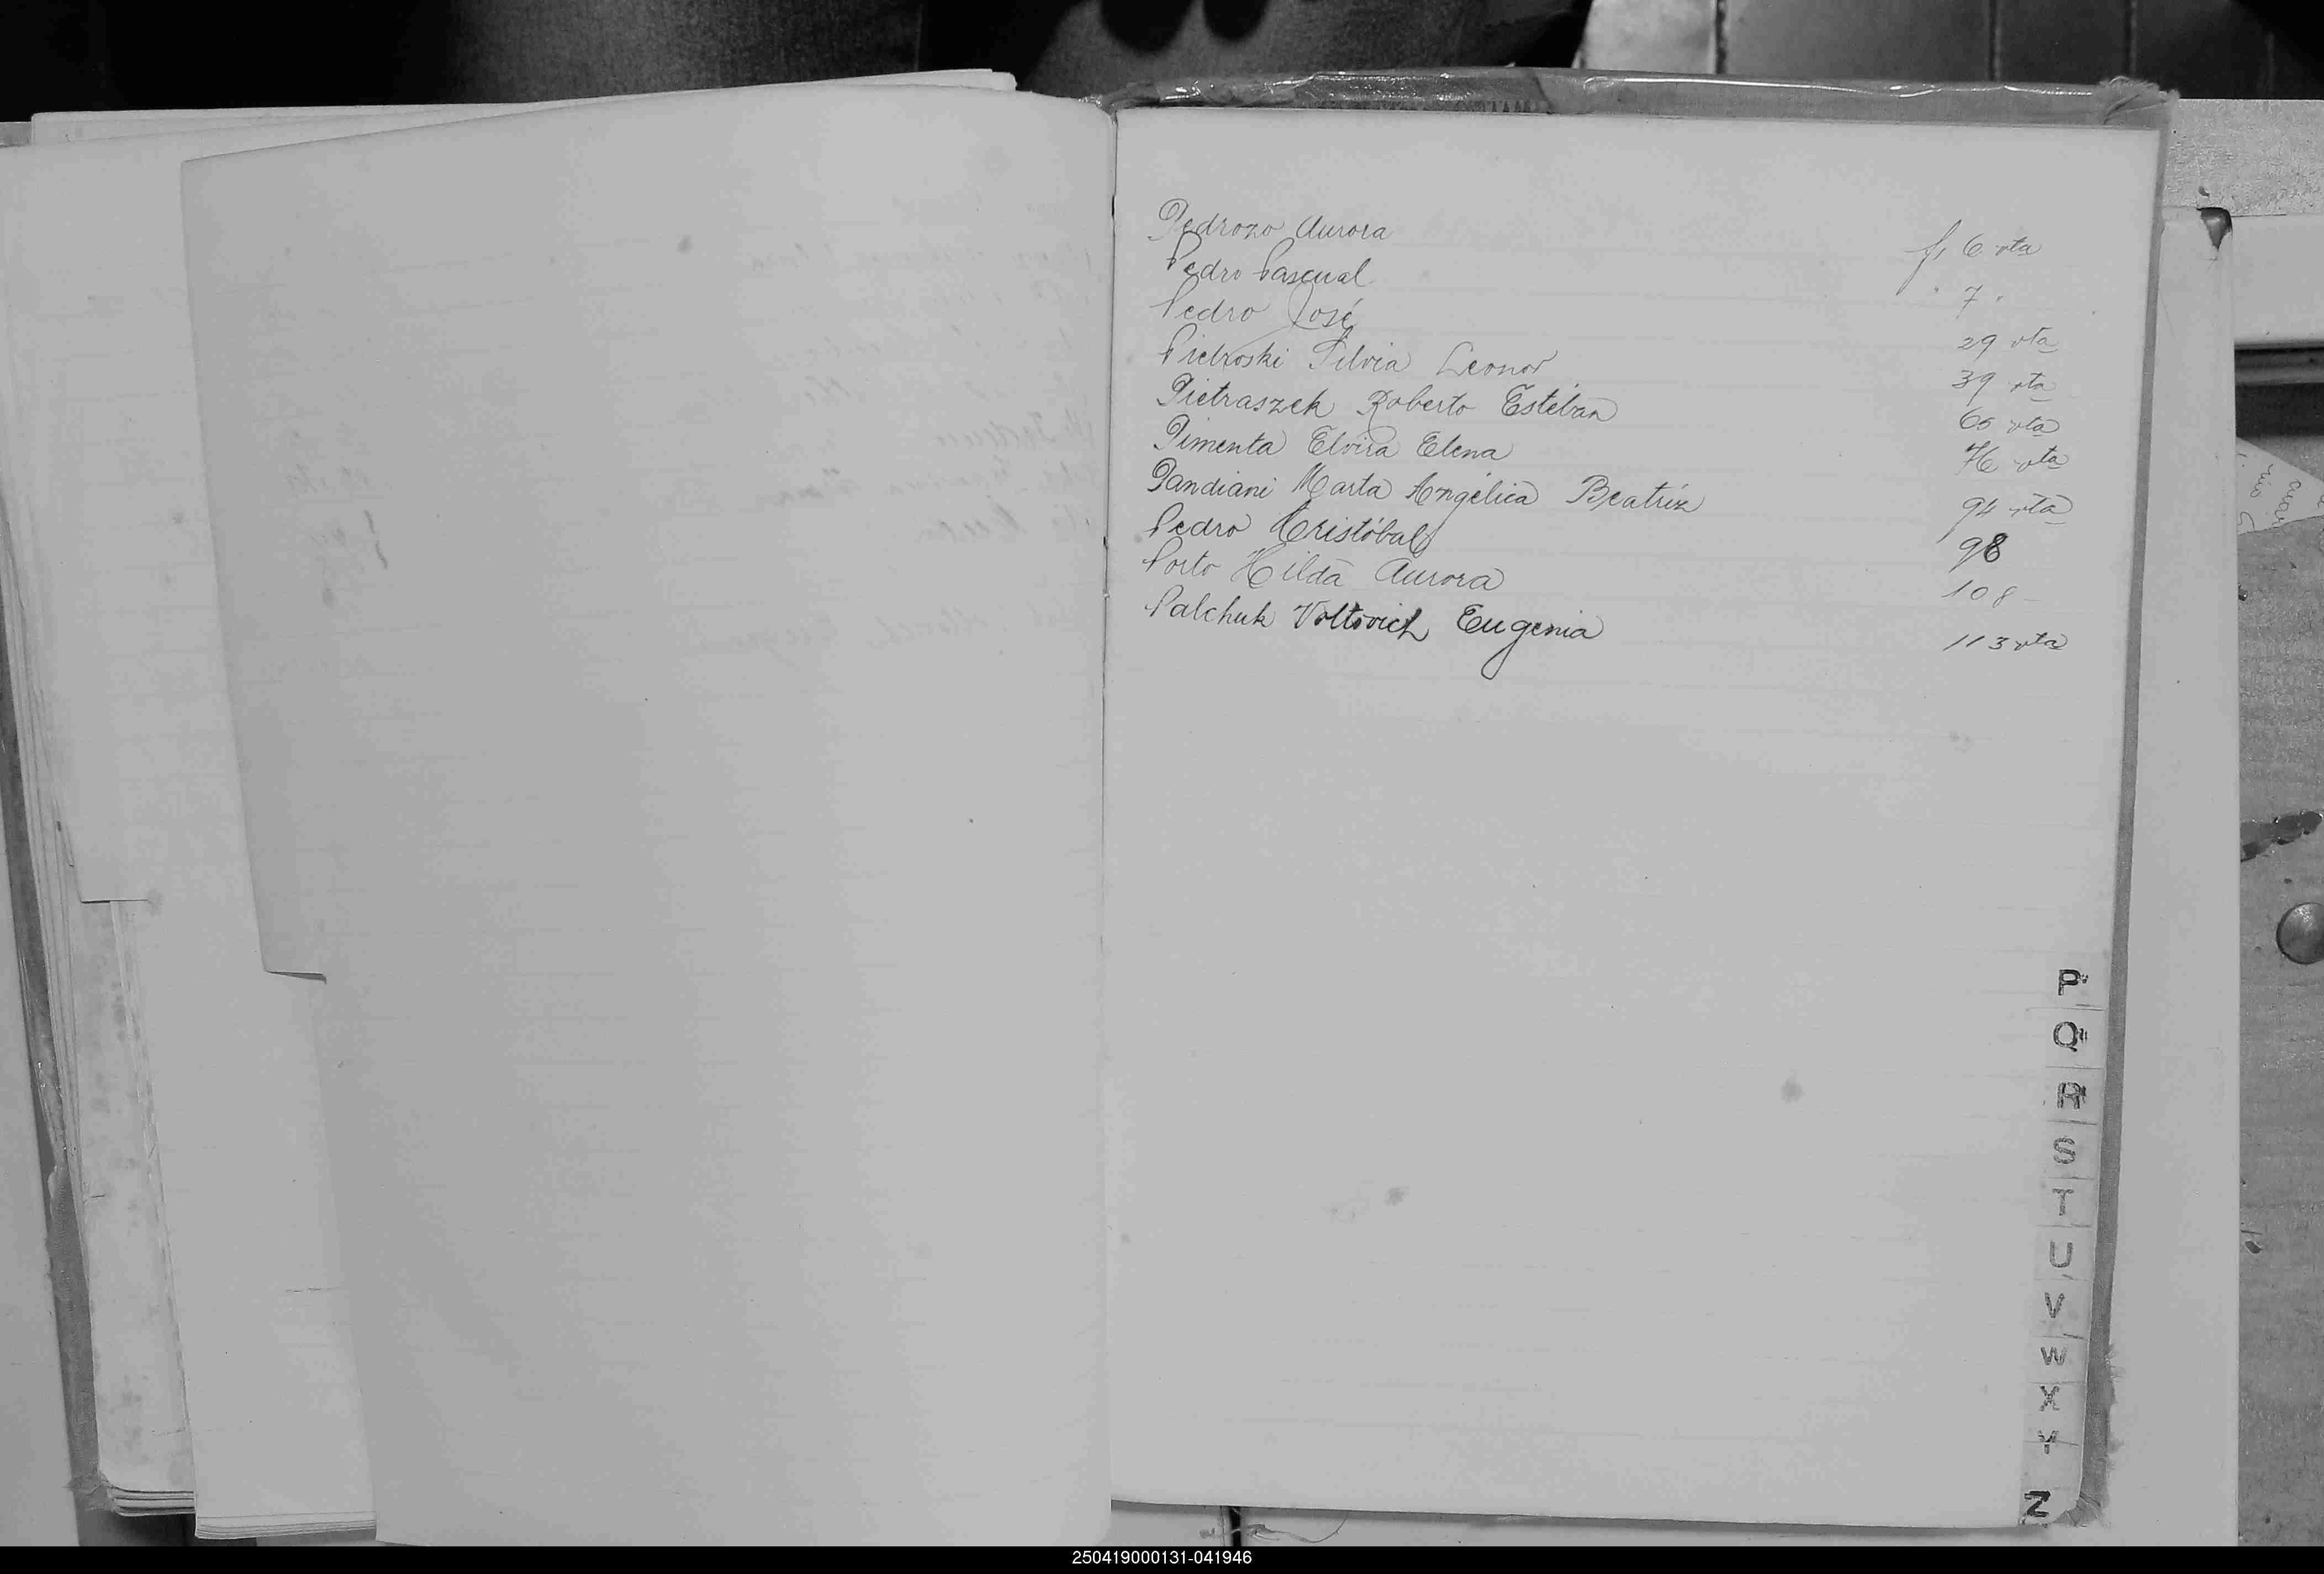 Pedrozo Aurora f, 6 vta
Pedro Pascual " 7 "
Pedro José 29 vta
Pietroski Silvia Leonor 39 vta
Pietraszek Roberto Estéban 65 vta
Pimenta Elvira Elena 76 vta
Pandiani Marta Angélica Beatríz 94 vta
Pedro Cristóbal 98
Porto Hilda Aurora 108
Palchuk Voltovich Eugenia 113 vta
P
Q
R
S
T
U
V
W
X
Y
Z
250419000131-041946